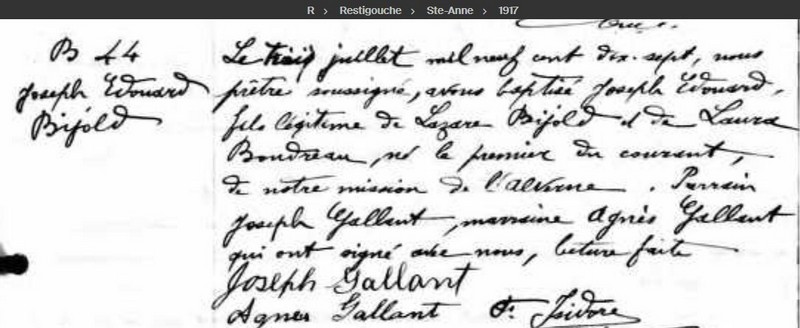 R › Restigouche › Ste-Anne › 1917
B 44
Joseph Edouard
Bijold
Le trois juillet mil neuf cent dix-sept, nous
prêtre soussigné, avons baptisé Joseph Edouard,
fils légitime de Lazare Bijold et de Laura
Boudreau, né le premier du courant,
de notre mission de l'Alverne. Parrain
Joseph Gallant, marraine Agnès Gallant
qui ont signé avec nous, lecture faite
Joseph Gallant
Agnes Gallant Fr. Isidore